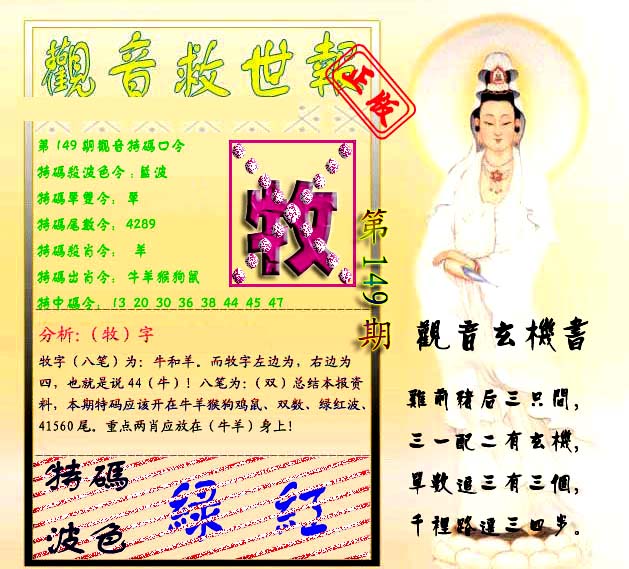 觀音救世報
正版
第149期觀音特碼口令
特碼殺波色令:藍波
特碼單雙令: 單
特碼尾數令: 4289
特碼殺肖令: 羊
特碼出肖令: 牛羊猴狗鼠
特中碼令: 13 20 30 36 38 44 45 47
牧
第149期
分析:(牧)字
牧字(八笔)为:牛和羊。而牧字左边为,右边为
四,也就是说44(牛)!八笔为:(双)总结本报资
料,本期特码应该开在牛羊猴狗鸡鼠、双数、绿红波、
41560尾。重点两肖应放在(牛羊)身上!
特碼
波色
綠 紅
觀音玄機書
雞前豬后三只間,
三一配二有玄機,
單數追三有三個,
千裡路遥三四步。